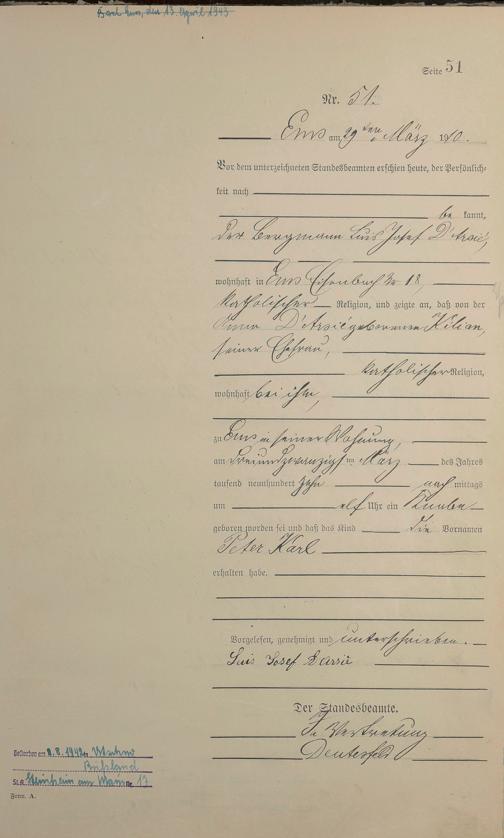 den 13. April 1943
Seite 51
Nr. 51.
Ems am 29ten März 1910.
Vor dem unterzeichneten Standesbeamten erschien heute, der Persönlich-
keit nach
be kannt,
der Bergmann Luis Josef D'Arsié,
wohnhaft in Ems Eisenbach Nr 18,
katholischer Religion, und zeigte an, daß von der
Anna D'Arsié geborenen Kilian,
seiner Ehefrau,
katholischer Religion,
wohnhaft bei ihm,
zu Ems in seiner Wohnung,
am dreiundzwanzigsten März des Jahres
tausend neunhundert zehn nach mittags
um elf Uhr ein Knabe
geboren worden sei und daß das Kind die Vornamen
Peter Karl
erhalten habe.
Vorgelesen, genehmigt und unterschrieben.
Luis Josef Darsié
Der Standesbeamte.
In Vertretung
Gestorben am 8.8.1942 in
Rußland
St.A. Steinheim am Main Nr. 13
Form. A.